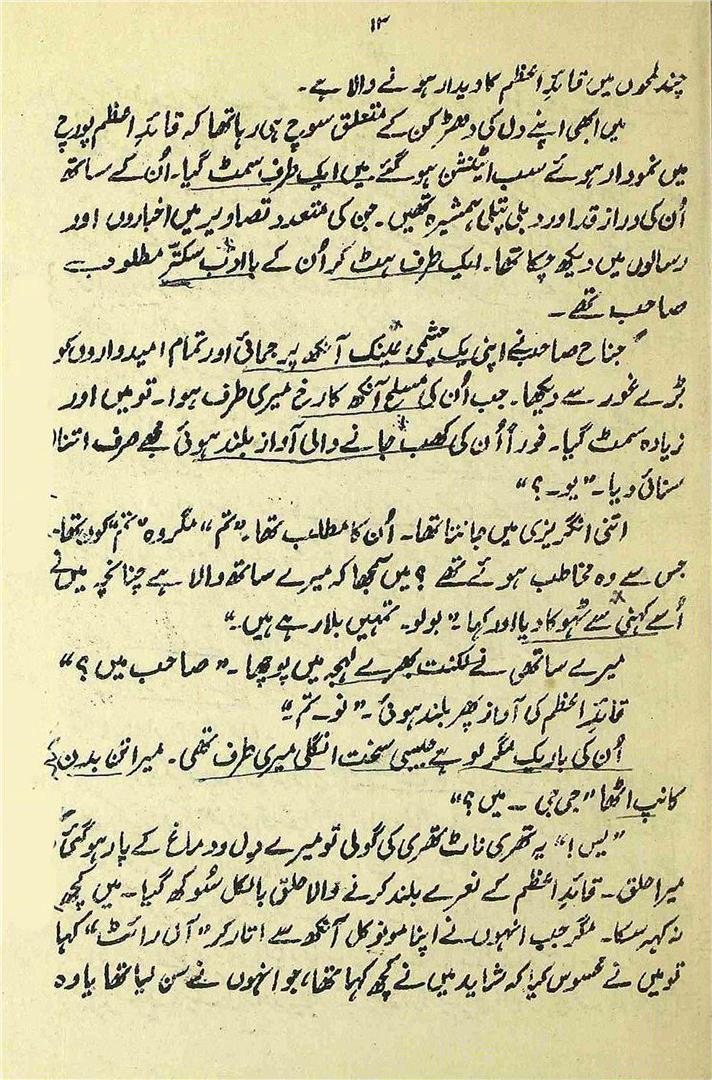 ۱۳
چند لمحوں میں قائدِ اعظم کا دیدار ہونے والا ہے۔
میں ابھی اپنے دل کی دھڑکن کے متعلق سوچ ہی رہا تھا کہ قائدِ اعظم پورچ
میں نمودار ہوئے سب اٹینشن ہو گئے۔ میں ایک طرف سمٹ گیا۔ اُن کے ساتھ
اُن کی دراز قد اور دبلی پتلی ہمشیرہ تھیں۔ جن کی متعدد تصاویر میں اخباروں اور
رسالوں میں دیکھ چکا تھا۔ ایک طرف ہٹ کر اُن کے باادب سکتر مطلوب
صاحب تھے۔
جناح صاحب نے اپنی یک چشمی عینک آنکھ پر جمائی اور تمام امیدواروں کو
بڑے غور سے دیکھا۔ جب اُن کی مسلح آنکھ کا رخ میری طرف ہوا۔ تو میں اور
زیادہ سمٹ گیا۔ فوراً اُن کی کھب جانے والی آواز بلند ہوئی مجھے صرف اتنا
سنائی دیا۔ ”یو۔؟“
اتنی انگریزی میں جانتا تھا۔ اُن کا مطلب تھا۔ ”تم“ مگر وہ ”تم“ کون تھا۔
جس سے وہ مخاطب ہوئے تھے؟ میں سمجھا کہ میرے ساتھ والا ہے چنانچہ میں نے
اُسے کہنی سے ٹہوکا دیا اور کہا۔ ”بولو۔ تمہیں بلا رہے ہیں۔“
میرے ساتھی نے لکنت بھرے لہجہ میں پوچھا۔ ”صاحب میں؟“
قائدِ اعظم کی آواز پھر بلند ہوئی۔ ”نو۔ تم۔“
اُن کی باریک مگر لوہے جیسی سخت انگلی میری طرف تھی۔ میرا تن بدن
کانپ اٹھا ”جی جی ۔ میں؟“
”یس!“ یہ تھری ناٹ تھری کی گولی تو میرے دل و دماغ کے پار ہو گئی
میرا حلق۔ قائدِ اعظم کے نعرے بلند کرنے والا حلق بالکل سُوکھ گیا۔ میں کچھ
نہ کہہ سکا۔ مگر جب انہوں نے اپنا مونوکل آنکھ سے اتار کر ”آل رائٹ“ کہا
تو میں نے محسوس کیا کہ شاید میں نے کچھ کہا تھا، جو انہوں نے سن لیا تھا یا وہ